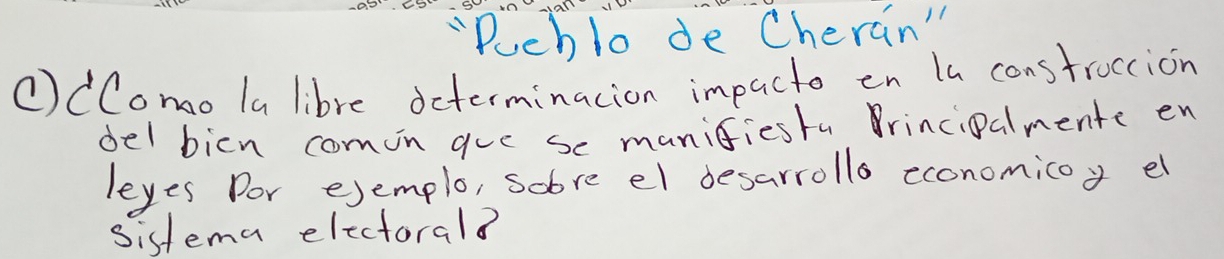 "Pueblo de Cherán"
C) ¿Como la libre determinacion impacto en la construcción
del bien común que se manifiesta Principalmente en
leyes Por ejemplo, sobre el desarrollo economico y el
sistema electoral?